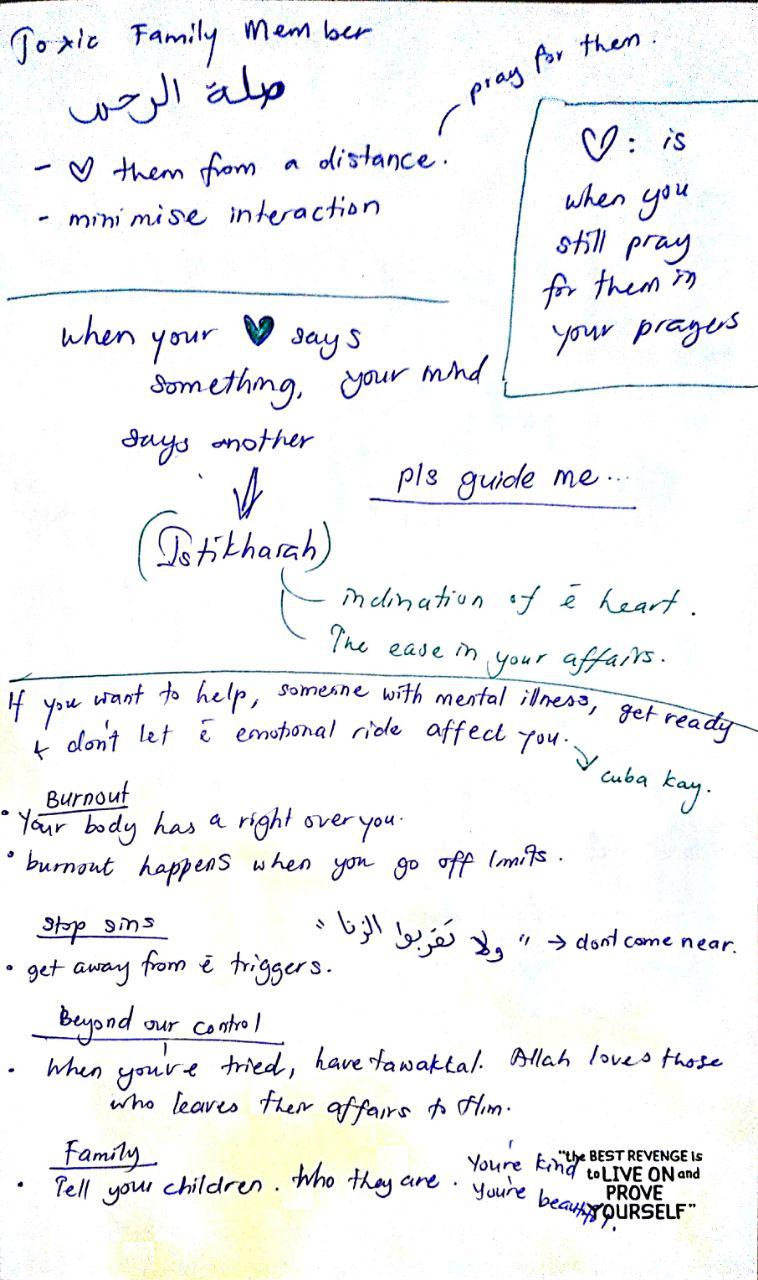 Toxic Family Member
صلة الرحم
pray for them.
- ♡ them from a distance.
- minimise interaction
♡: is
when you
still pray
for them in
your prayers
when your ♥ says
something, your mind
says another
pls guide me...
(Istikharah)
inclination of ē heart.
The ease in your affairs.
If you want to help, someone with mental illness, get ready
& don't let ē emotional ride affect you.
cuba kay.
Burnout
• Your body has a right over you.
• burnout happens when you go off limits.
Stop sins
"ولا تقربوا الزنا" → dont come near.
• get away from ē triggers.
Beyond our control
• When you've tried, have tawakkal. Allah loves those
who leaves their affairs to Him.
Family
• Tell your children. Who they are. You're kind
You're beautiful.
"the BEST REVENGE is
to LIVE ON and
PROVE
YOURSELF"